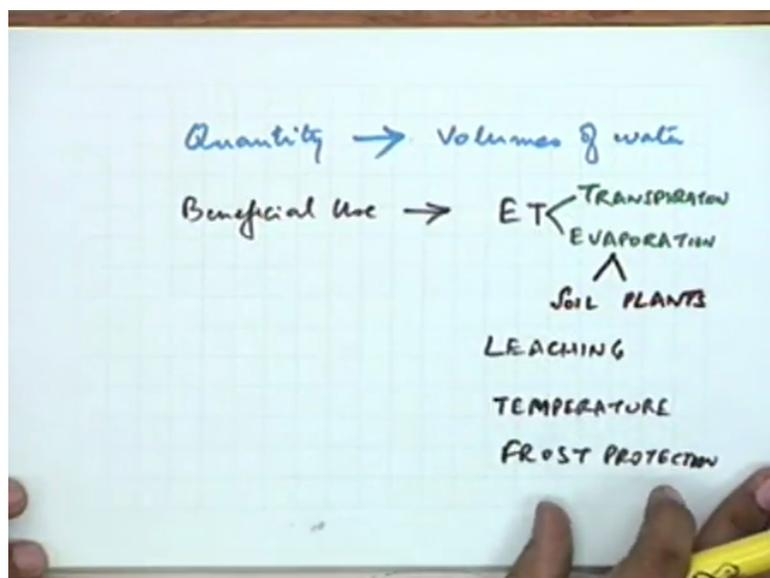 Quantity → Volumes of water
Beneficial Use → ET < TRANSPIRATION
EVAPORATION
SOIL PLANTS
LEACHING
TEMPERATURE
FROST PROTECTION